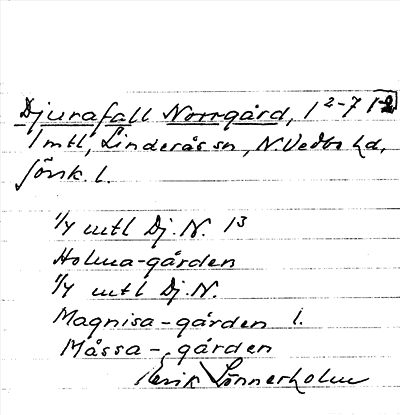 Djurafall Norrgård, 1 2-7 1-2
1 mtl, Linderås sn, N. Vedbo hd,
Jönk. l.
1/4 mtl Dj. N. 1 3
Holma-gården
1/4 mtl Dj. N.
Magnisa-gården l.
Måssa-gården
Erik Lönnerholm